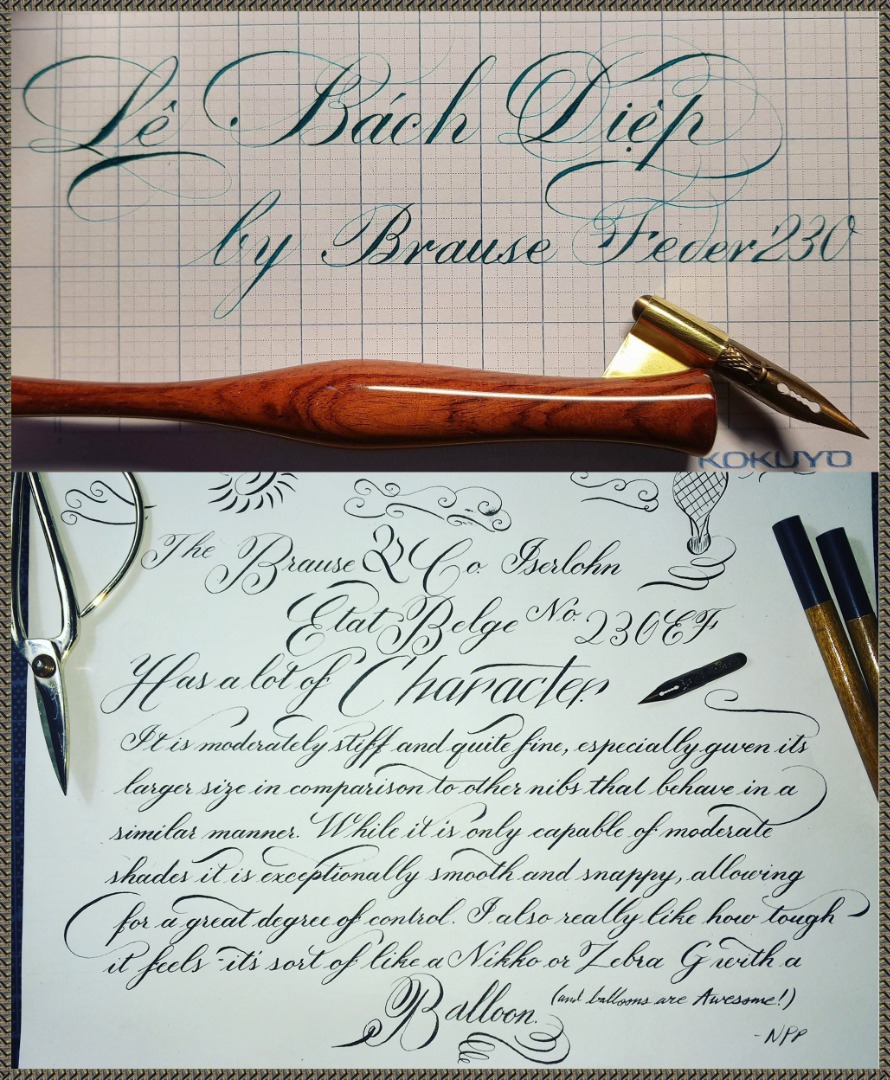 Lê Bách Diệp
by Brause Feder 230
KOKUYO
The Brause & Co. Iserlohn
Etat Belge No. 230EF
Has a lot of Character.
It is moderately stiff and quite fine, especially given its
larger size in comparison to other nibs that behave in a
similar manner. While it is only capable of moderate
shades it is exceptionally smooth and snappy, allowing
for a great degree of control. I also really like how tough
it feels - it's sort of like a Nikko or Zebra G with a
Balloon. (and balloons are Awesome!)
-NPP